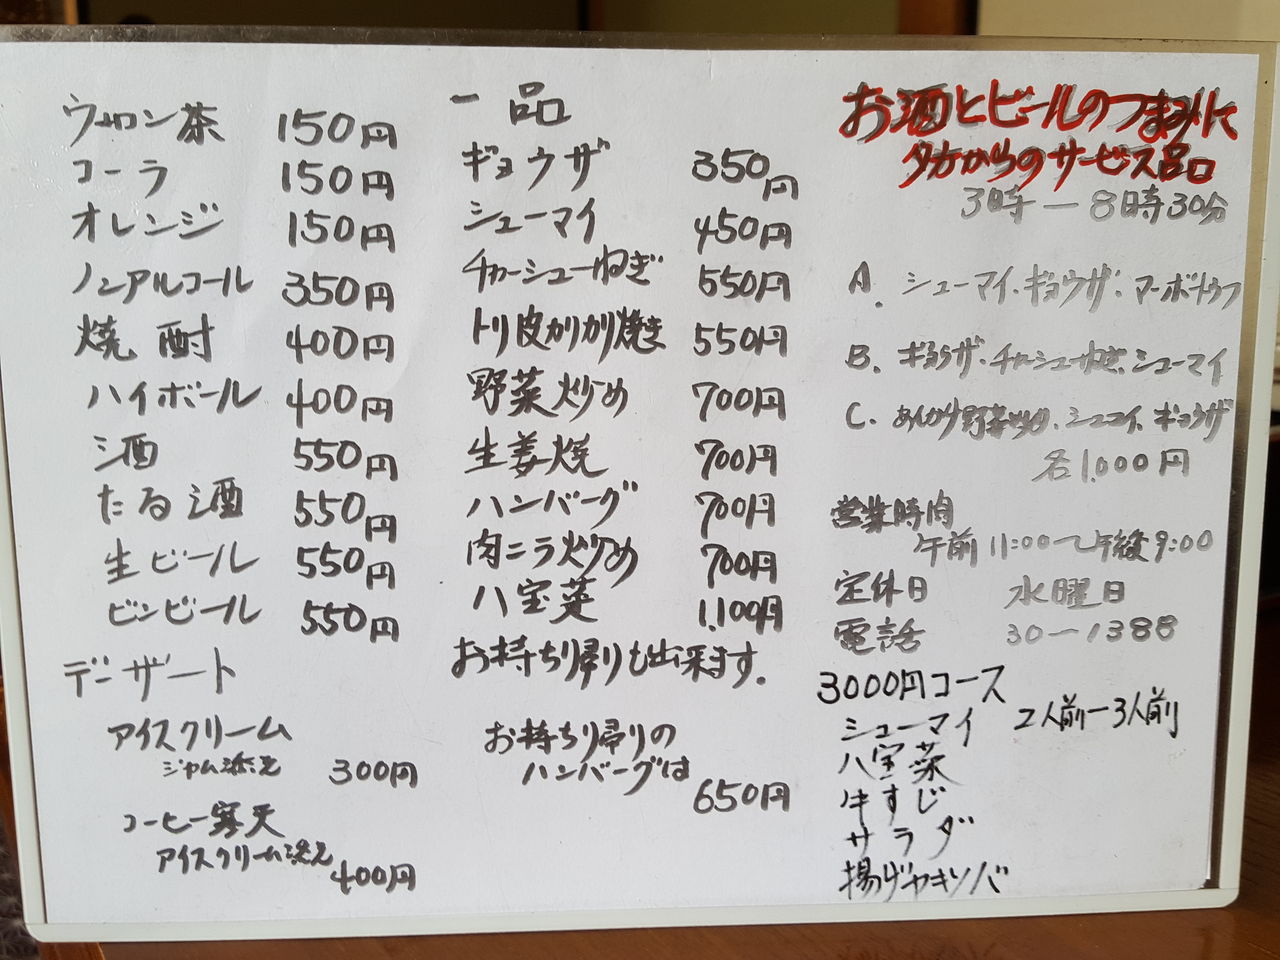 ウーロン茶 150円
コーラ 150円
オレンジ 150円
ノンアルコール 350円
焼酎 400円
ハイボール 400円
酒 550円
たる酒 550円
生ビール 550円
ビンビール 550円
デザート
アイスクリーム
ジャム添え 300円
コーヒー寒天
アイスクリーム添え 400円
一品
ギョウザ 350円
シューマイ 450円
チャーシューねぎ 550円
トリ皮カリカリ焼き 550円
野菜炒め 700円
生姜焼 700円
ハンバーグ 700円
肉ニラ炒め 700円
八宝菜 1,100円
お持ち帰りも出来ます.
お持ち帰りの
ハンバーグは
650円
お酒とビールのつまみに
夕方からのサービス品
3時ー8時30分
A. シューマイ、ギョウザ、マーボトウフ
B. ギョウザ、チャーシューねぎ、シューマイ
C. あんかけ野菜炒め、シュウマイ、ギョウザ
各1,000円
営業時間
午前11:00〜午後9:00
定休日 水曜日
電話 30ー1388
3000円コース
シューマイ 2人前ー3人前
八宝菜
牛すじ
サラダ
揚げヤキソバ